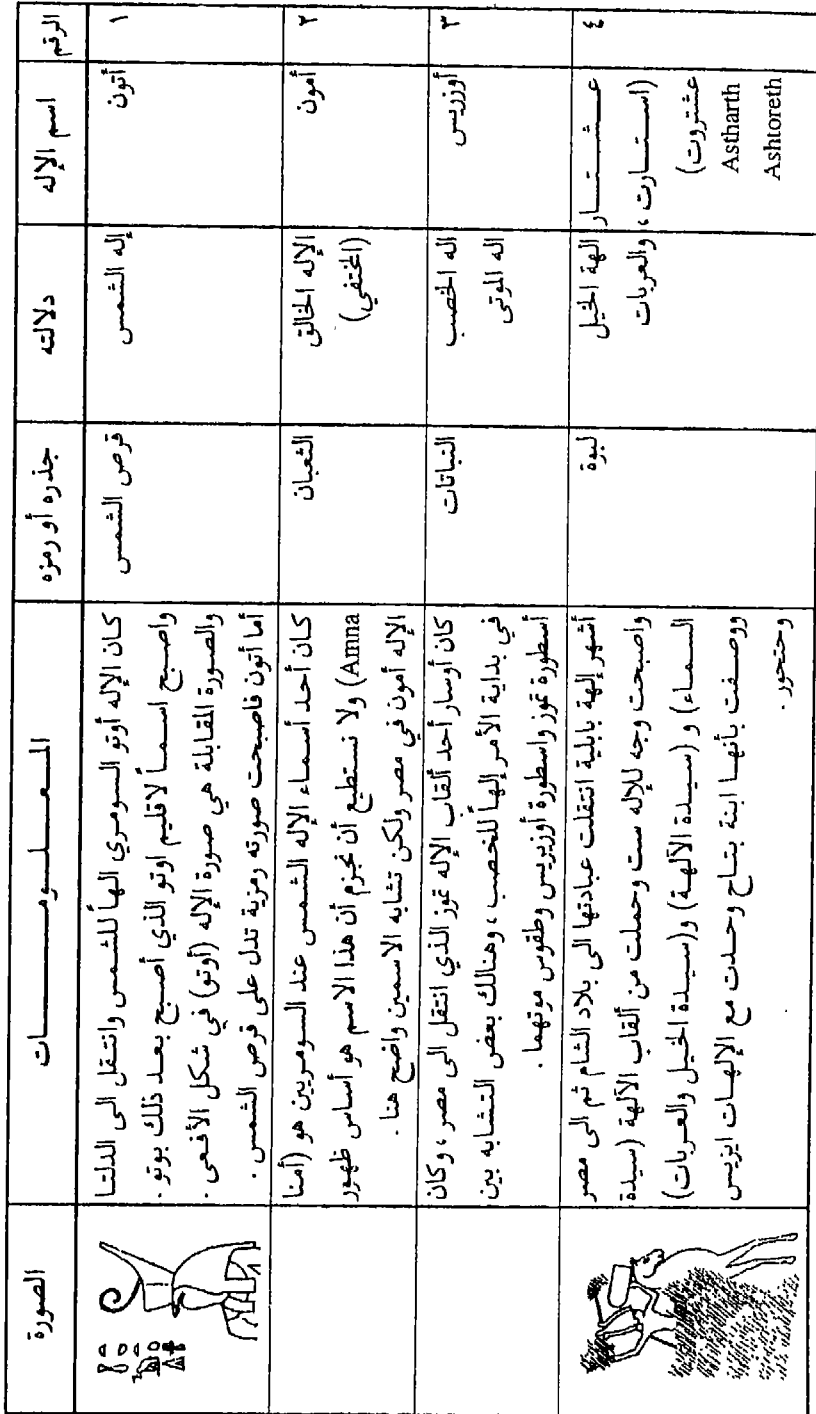 الرقم
اسم الإله
دلالته
جذره أو رمزه
المعلومات
الصورة
١
أتون
إله الشمس
قرص الشمس
كان الإله أوتو السومري الهاً للشمس وانتقل الى الدلتا
واصبح اسماً لاقليم اوتو الذي أصبح بعد ذلك بوتو.
والصورة المقابلة هي صورة الإله (أوتو) في شكل الأفعى.
أما أتون فاصبحت صورته ومزية تدل على قرص الشمس.
٢
أمون
الإله الخالق
(المختفي)
الثعبان
كان أحد أسماء الإله الشمس عند السومريين هو (أمنا
Amna) ولا نستطيع أن نجزم أن هذا الاسم هو أساس ظهور
الإله أمون في مصر ولكن تشابه الاسمين واضح هنا.
٣
أوزريس
اله الخصب
اله الموتى
النباتات
كان أوسار أحد ألقاب الإله تموز الذي انتقل الى مصر، وكان
في بداية الأمر إلهاً للخصب، وهنالك بعض التشابه بين
أسطورة تموز واسطورة أوزيريس وطقوس موتهما.
٤
عشتار
(استارت،
عشتروت)
Astharth
Ashtoreth
الهة الخيل
والعربات
لبوة
أشهر إلهة بابلية انتقلت عبادتها الى بلاد الشام ثم الى مصر
واصبحت وجه للإله ست وحملت من ألقاب الآلهة (سيدة
السماء) و (سيدة الآلهة) و(سيدة الخيل والعربات)
ووصفت بأنها ابنة بتاح وحدت مع الإلهات ايزيس
وحتحور.